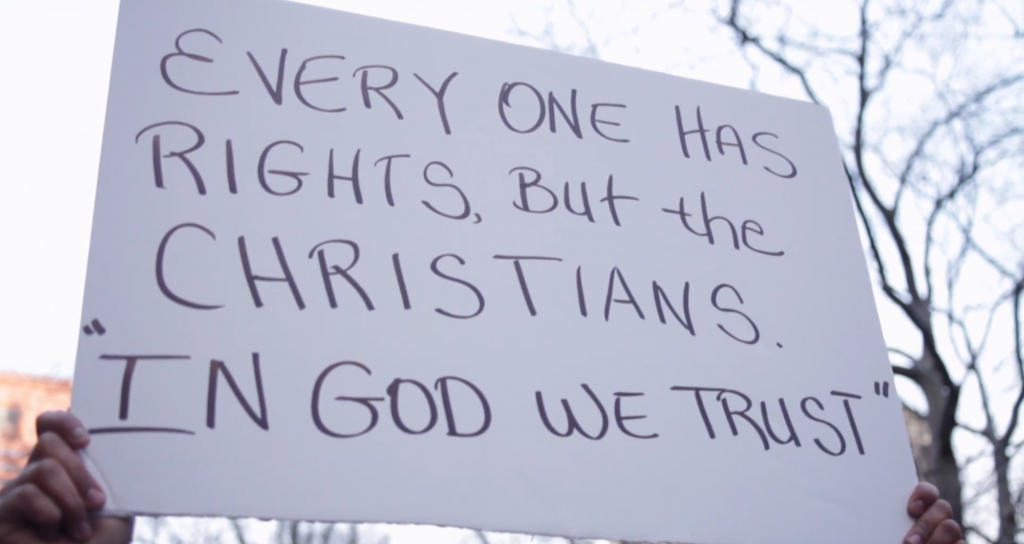 EVERY ONE HAS
RIGHTS, But the
CHRISTIANS.
"IN GOD WE TRUST"